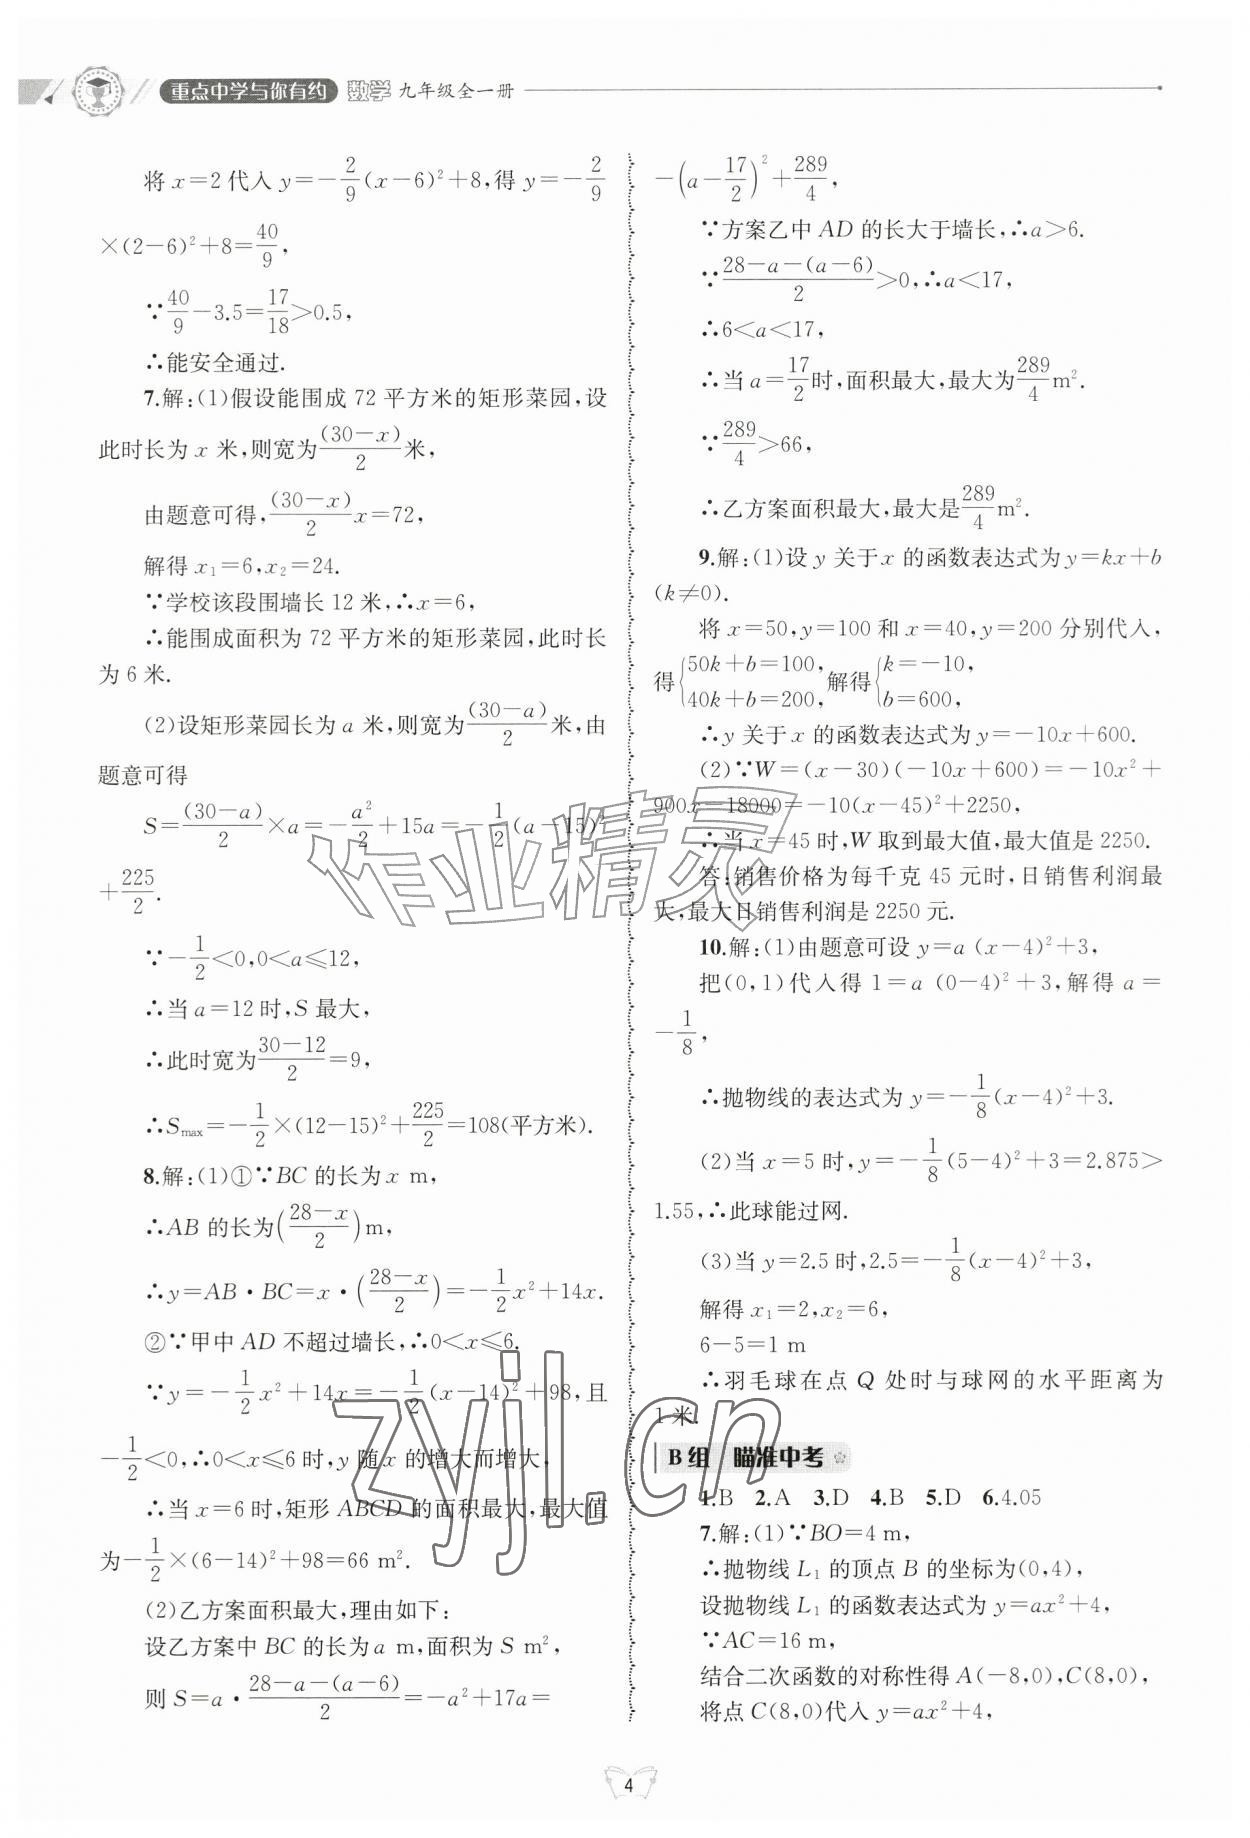 重点中学与你有约 数学 九年级全一册
将 x=2 代入 y=-2/9(x-6)²+8,得 y=-2/9
×(2-6)²+8=40/9,
∵40/9-3.5=17/18>0.5,
∴能安全通过.
7.解:(1)假设能围成 72 平方米的矩形菜园,设
此时长为 x 米,则宽为(30-x)/2米,
由题意可得,(30-x)/2 x=72,
解得 x₁=6,x₂=24.
∵学校该段围墙长 12 米,∴x=6,
∴能围成面积为 72 平方米的矩形菜园,此时长
为 6 米.
(2)设矩形菜园长为 a 米,则宽为(30-a)/2米,由
题意可得
S=(30-a)/2×a=-a²/2+15a=-1/2(a-15)²
+225/2.
∵-1/2<0,0<a≤12,
∴当 a=12 时,S 最大,
∴此时宽为(30-12)/2=9,
∴Smax=-1/2×(12-15)²+225/2=108(平方米).
8.解:(1)①∵BC 的长为 x m,
∴AB 的长为((28-x)/2)m,
∴y=AB·BC=x·((28-x)/2)=-1/2x²+14x.
②∵甲中 AD 不超过墙长,∴0<x≤6.
∵y=-1/2x²+14x=-1/2(x-14)²+98,且
-1/2<0,∴0<x≤6 时,y 随 x 的增大而增大,
∴当 x=6 时,矩形 ABCD 的面积最大,最大值
为-1/2×(6-14)²+98=66 m².
(2)乙方案面积最大,理由如下:
设乙方案中 BC 的长为 a m,面积为 S m²,
则 S=a·(28-a-(a-6))/2=-a²+17a=
-(a-17/2)²+289/4,
∵方案乙中 AD 的长大于墙长,∴a>6.
∵(28-a-(a-6))/2>0,∴a<17,
∴6<a<17,
∴当 a=17/2时,面积最大,最大为289/4m².
∵289/4>66,
∴乙方案面积最大,最大是289/4m².
9.解:(1)设 y 关于 x 的函数表达式为 y=kx+b
(k≠0).
将 x=50,y=100 和 x=40,y=200 分别代入,
得{50k+b=100, 40k+b=200,解得{k=-10, b=600,
∴y 关于 x 的函数表达式为 y=-10x+600.
(2)∵W=(x-30)(-10x+600)=-10x²+
900x-18000=-10(x-45)²+2250,
∴当 x=45 时,W 取到最大值,最大值是 2250.
答:销售价格为每千克 45 元时,日销售利润最
大,最大日销售利润是 2250 元.
10.解:(1)由题意可设 y=a (x-4)²+3,
把(0,1)代入得 1=a (0-4)²+3,解得 a=
-1/8,
∴抛物线的表达式为 y=-1/8(x-4)²+3.
(2)当 x=5 时,y=-1/8(5-4)²+3=2.875>
1.55,∴此球能过网.
(3)当 y=2.5 时,2.5=-1/8(x-4)²+3,
解得 x₁=2,x₂=6,
6-5=1 m
∴羽毛球在点 Q 处时与球网的水平距离为
1 米.
B组 瞄准中考
1.B 2.A 3.D 4.B 5.D 6.4.05
7.解:(1)∵BO=4 m,
∴抛物线 L₁ 的顶点 B 的坐标为(0,4),
设抛物线 L₁ 的函数表达式为 y=ax²+4,
∵AC=16 m,
结合二次函数的对称性得 A(-8,0),C(8,0),
将点 C(8,0)代入 y=ax²+4,
作业精灵
zyjl.cn
4